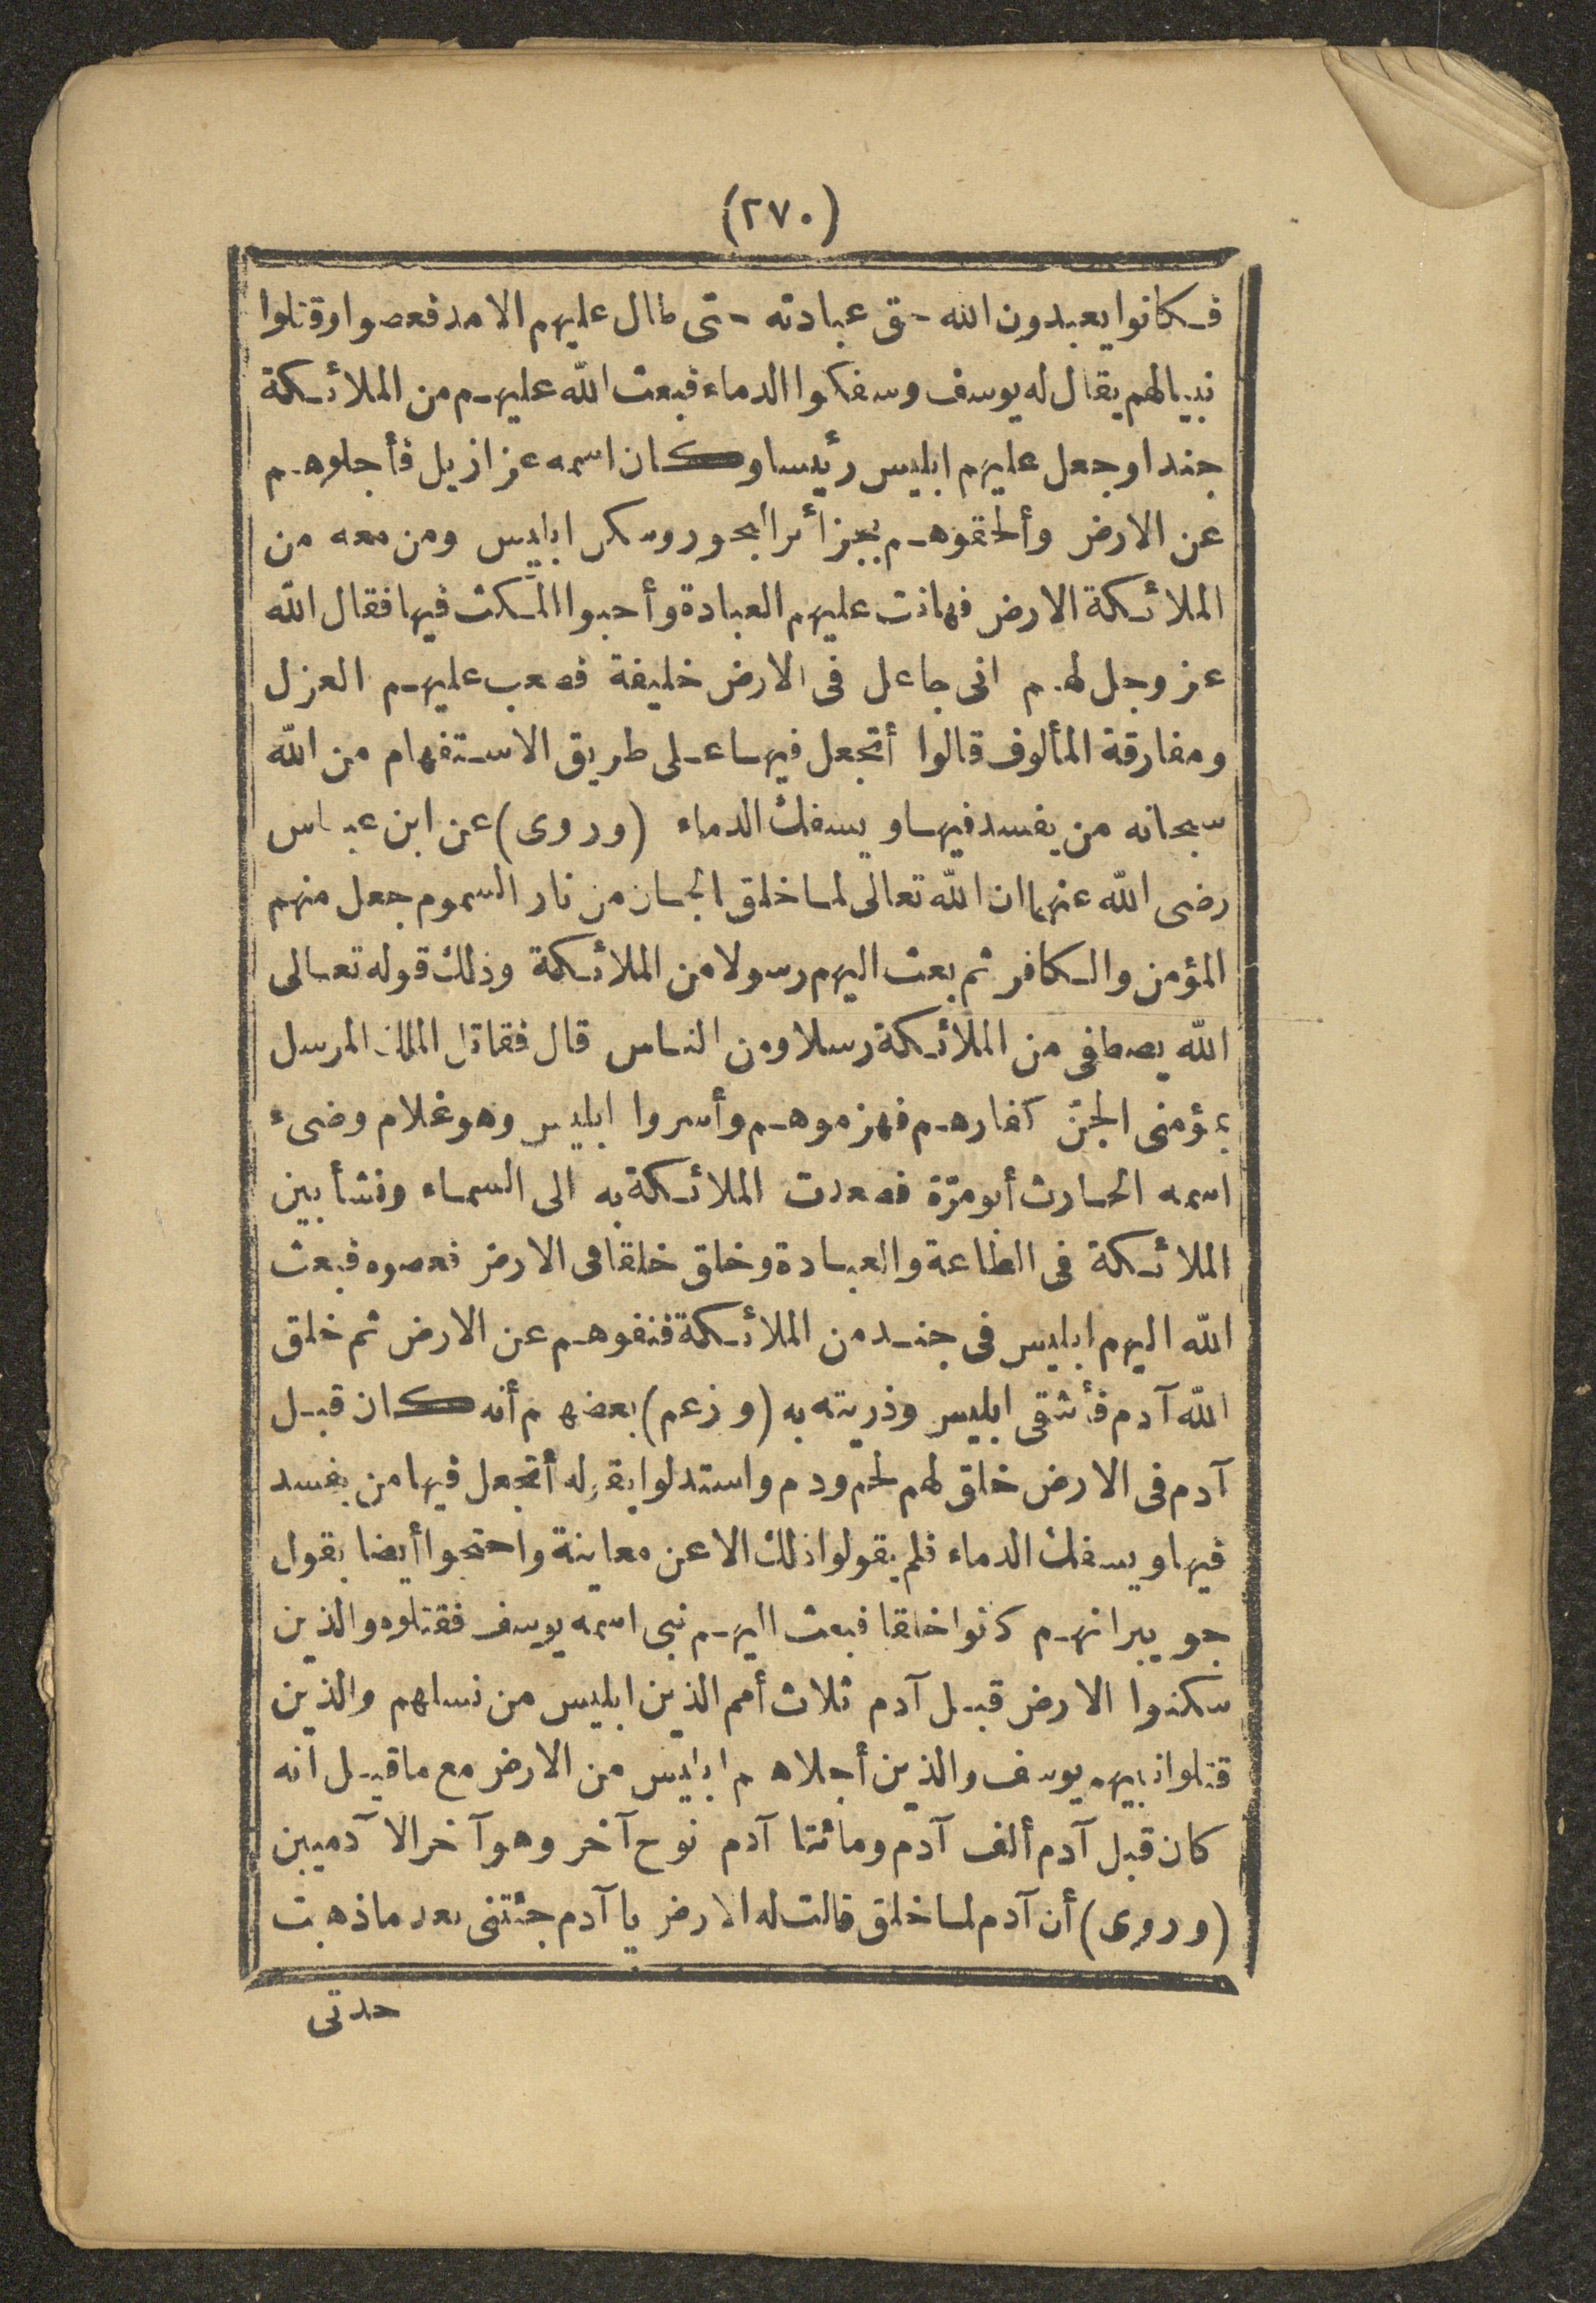 (٢٧٠)
فكانوا يعبدون الله حق عبادته حتى طال عليهم الامد فعصوا وقتلوا
نبيا لهم يقال له يوسف وسفكوا الدماء فبعث الله عليهم من الملائكة
جندا وجعل عليهم ابليس رئيسا وكان اسمه عزازيل فأجلوهم
عن الارض وألحقوهم بجزائر البحور وسكن ابليس ومن معه من
الملائكة الارض فهانت عليهم العبادة وأحبوا المكث فيها فقال الله
عز وجل لهم انى جاعل فى الارض خليفة فصعب عليهم العزل
ومفارقة المألوف قالوا أتجعل فيها على طريق الاستفهام من الله
سبحانه من يفسد فيها ويسفك الدماء (وروى) عن ابن عباس
رضى الله عنهما ان الله تعالى لما خلق الجان من نار السموم جعل منهم
المؤمن والكافر ثم بعث اليهم رسولا من الملائكة وذلك قوله تعالى
الله يصطفى من الملائكة رسلا ومن الناس قال فقاتل الملك المرسل
بمؤمنى الجنّ كفارهم فهزموهم وأسروا ابليس وهو غلام وضىء
اسمه الحارث أبو مرّة فصعدت الملائكة به الى السماء ونشأ بين
الملائكة فى الطاعة والعبادة وخلق خلقا فى الارض فعصوه فبعث
الله اليهم ابليس فى جند من الملائكة فنفوهم عن الارض ثم خلق
الله آدم فأشقى ابليس وذريته به (وزعم) بعضهم أنه كان قبل
آدم فى الارض خلق لهم لحم ودم واستدلوا بقوله أتجعل فيها من يفسد
فيها ويسفك الدماء فلم يقولوا ذلك الا عن معاينة واحتجوا أيضا بقول
جويبر انهم كانوا خلقا فبعث اليهم نبى اسمه يوسف فقتلوه والذين
سكنوا الارض قبل آدم ثلاث أمم الذين ابليس من نسلهم والذين
قتلوا نبيهم يوسف والذين أجلاهم ابليس من الارض مع ما قيل انه
كان قبل آدم ألف آدم ومائتا آدم نوح آخر وهو آخر الآدميين
(وروى) أن آدم لما خلق قالت له الارض يا آدم جئتنى بعد ما ذهبت
حدتى